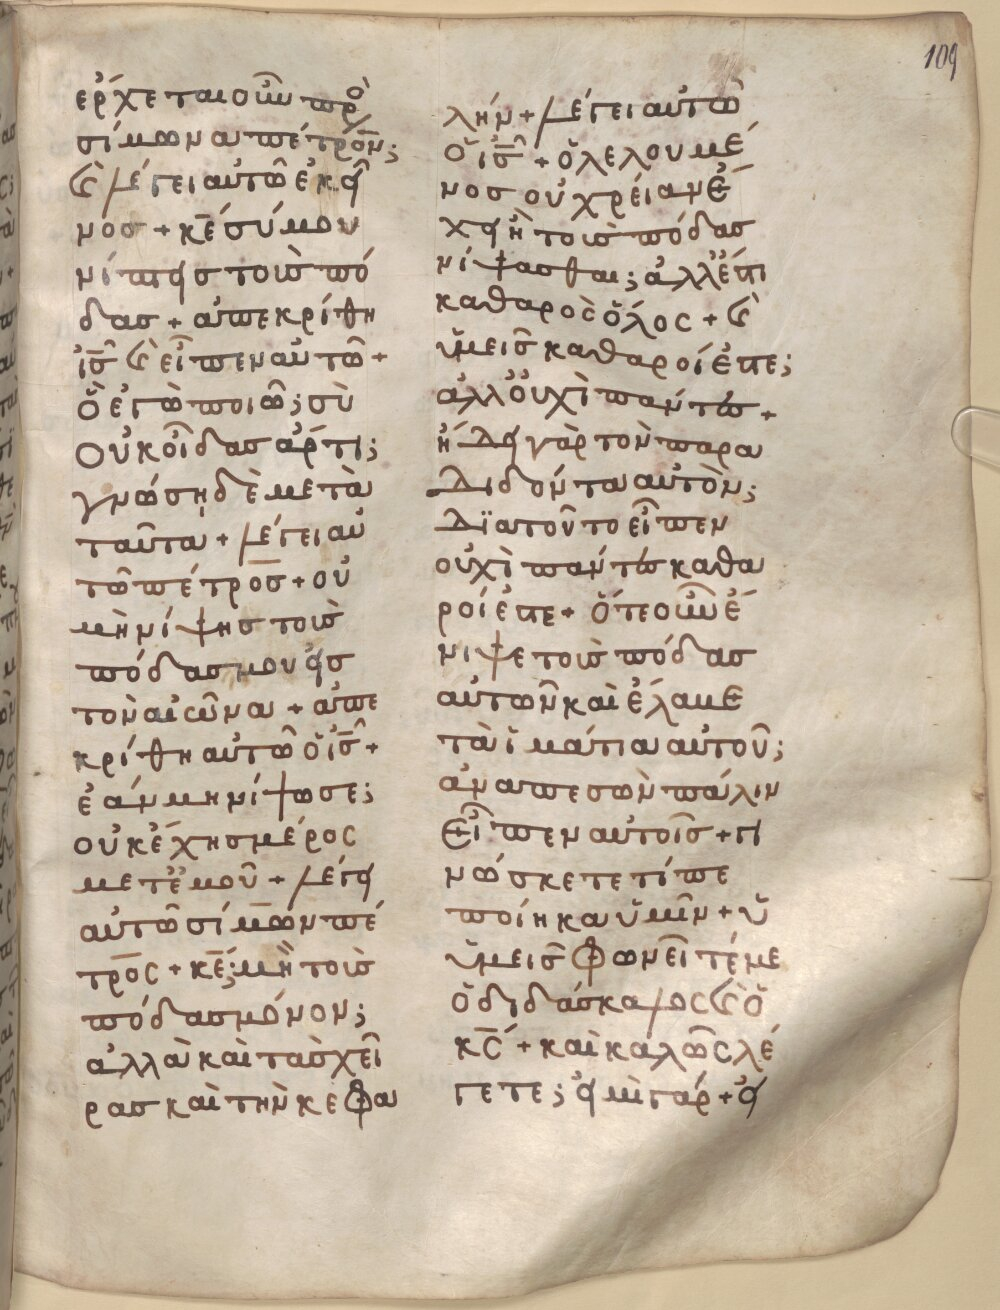 109
ἔρχεται οὖν πρὸ
σίμωνα πέτρον;
καὶ λέγει αὐτῶ ἐκεῖ
νοσ + κ̅ε̅ σύ μου
νίπτεισ τοὺσ πό
δασ + ἀπεκρίθη
ἰ̅σ̅ καὶ εἶπεν αὐτῶ +
ὃ ἐγὼ ποιῶ; σὺ
οὐκ οἶδασ ἄρτι;
γνώση δὲ μετὰ
ταῦτα + λέγει αὐ
τῶ πέτροσ + οὐ
μὴ νίψησ τοὺσ
πόδασ μου εἰσ
τὸν αἰῶνα + ἀπε
κρίθη αὐτῶ ὁ ἰ̅σ̅ +
ἐὰν μη νίψω σε;
οὐκ ἔχησ μέροσ
μετ ἐμοῦ + λέγει
αὐτῶ σίμων πέ
τροσ + κ̅ε̅; μὴ τοὺσ
πόδασ μόνον;
ἀλλὰ καὶ τὰσ χεῖ
ρασ καὶ τὴν κεφα
λήν + λέγει αὐτῶ
ὁ ἰ̅σ̅ + ὁ λελουμέ
νοσ οὐ χρείαν ἔ
χει ἢ τοὺσ πόδασ
νίψασθαι; ἀλλ ἔστι
καθαρὸσ ὅλοσ + καὶ
ὑμεῖσ καθαροί ἐστε;
ἀλλ οὐχὶ πάντεσ +
ἤδει γὰρ τὸν παρα
διδόντα αὐτὸν;
διατοῦτο εἶπεν
οὐχὶ πάντεσ καθα
ροί ἐστε + ὅτε οὖν ἔ
νιψε τοὺσ πόδασ
αὐτῶν καὶ ἔλαβε
τὰ ἱμάτια αὐτοῦ;
ἀναπεσὼν πάλιν
εἶπεν αὐτοῖσ + γι
νώσκετε τί πε
ποίηκα ὑμῖν + ὑ
ὑμεῖσ φωνεῖτέ με
ὁ διδάσκαλοσ καὶ ὁ
κ̅σ̅ + καὶ καλῶσ λέ
γετε; εἰμὶ γάρ + εἰ